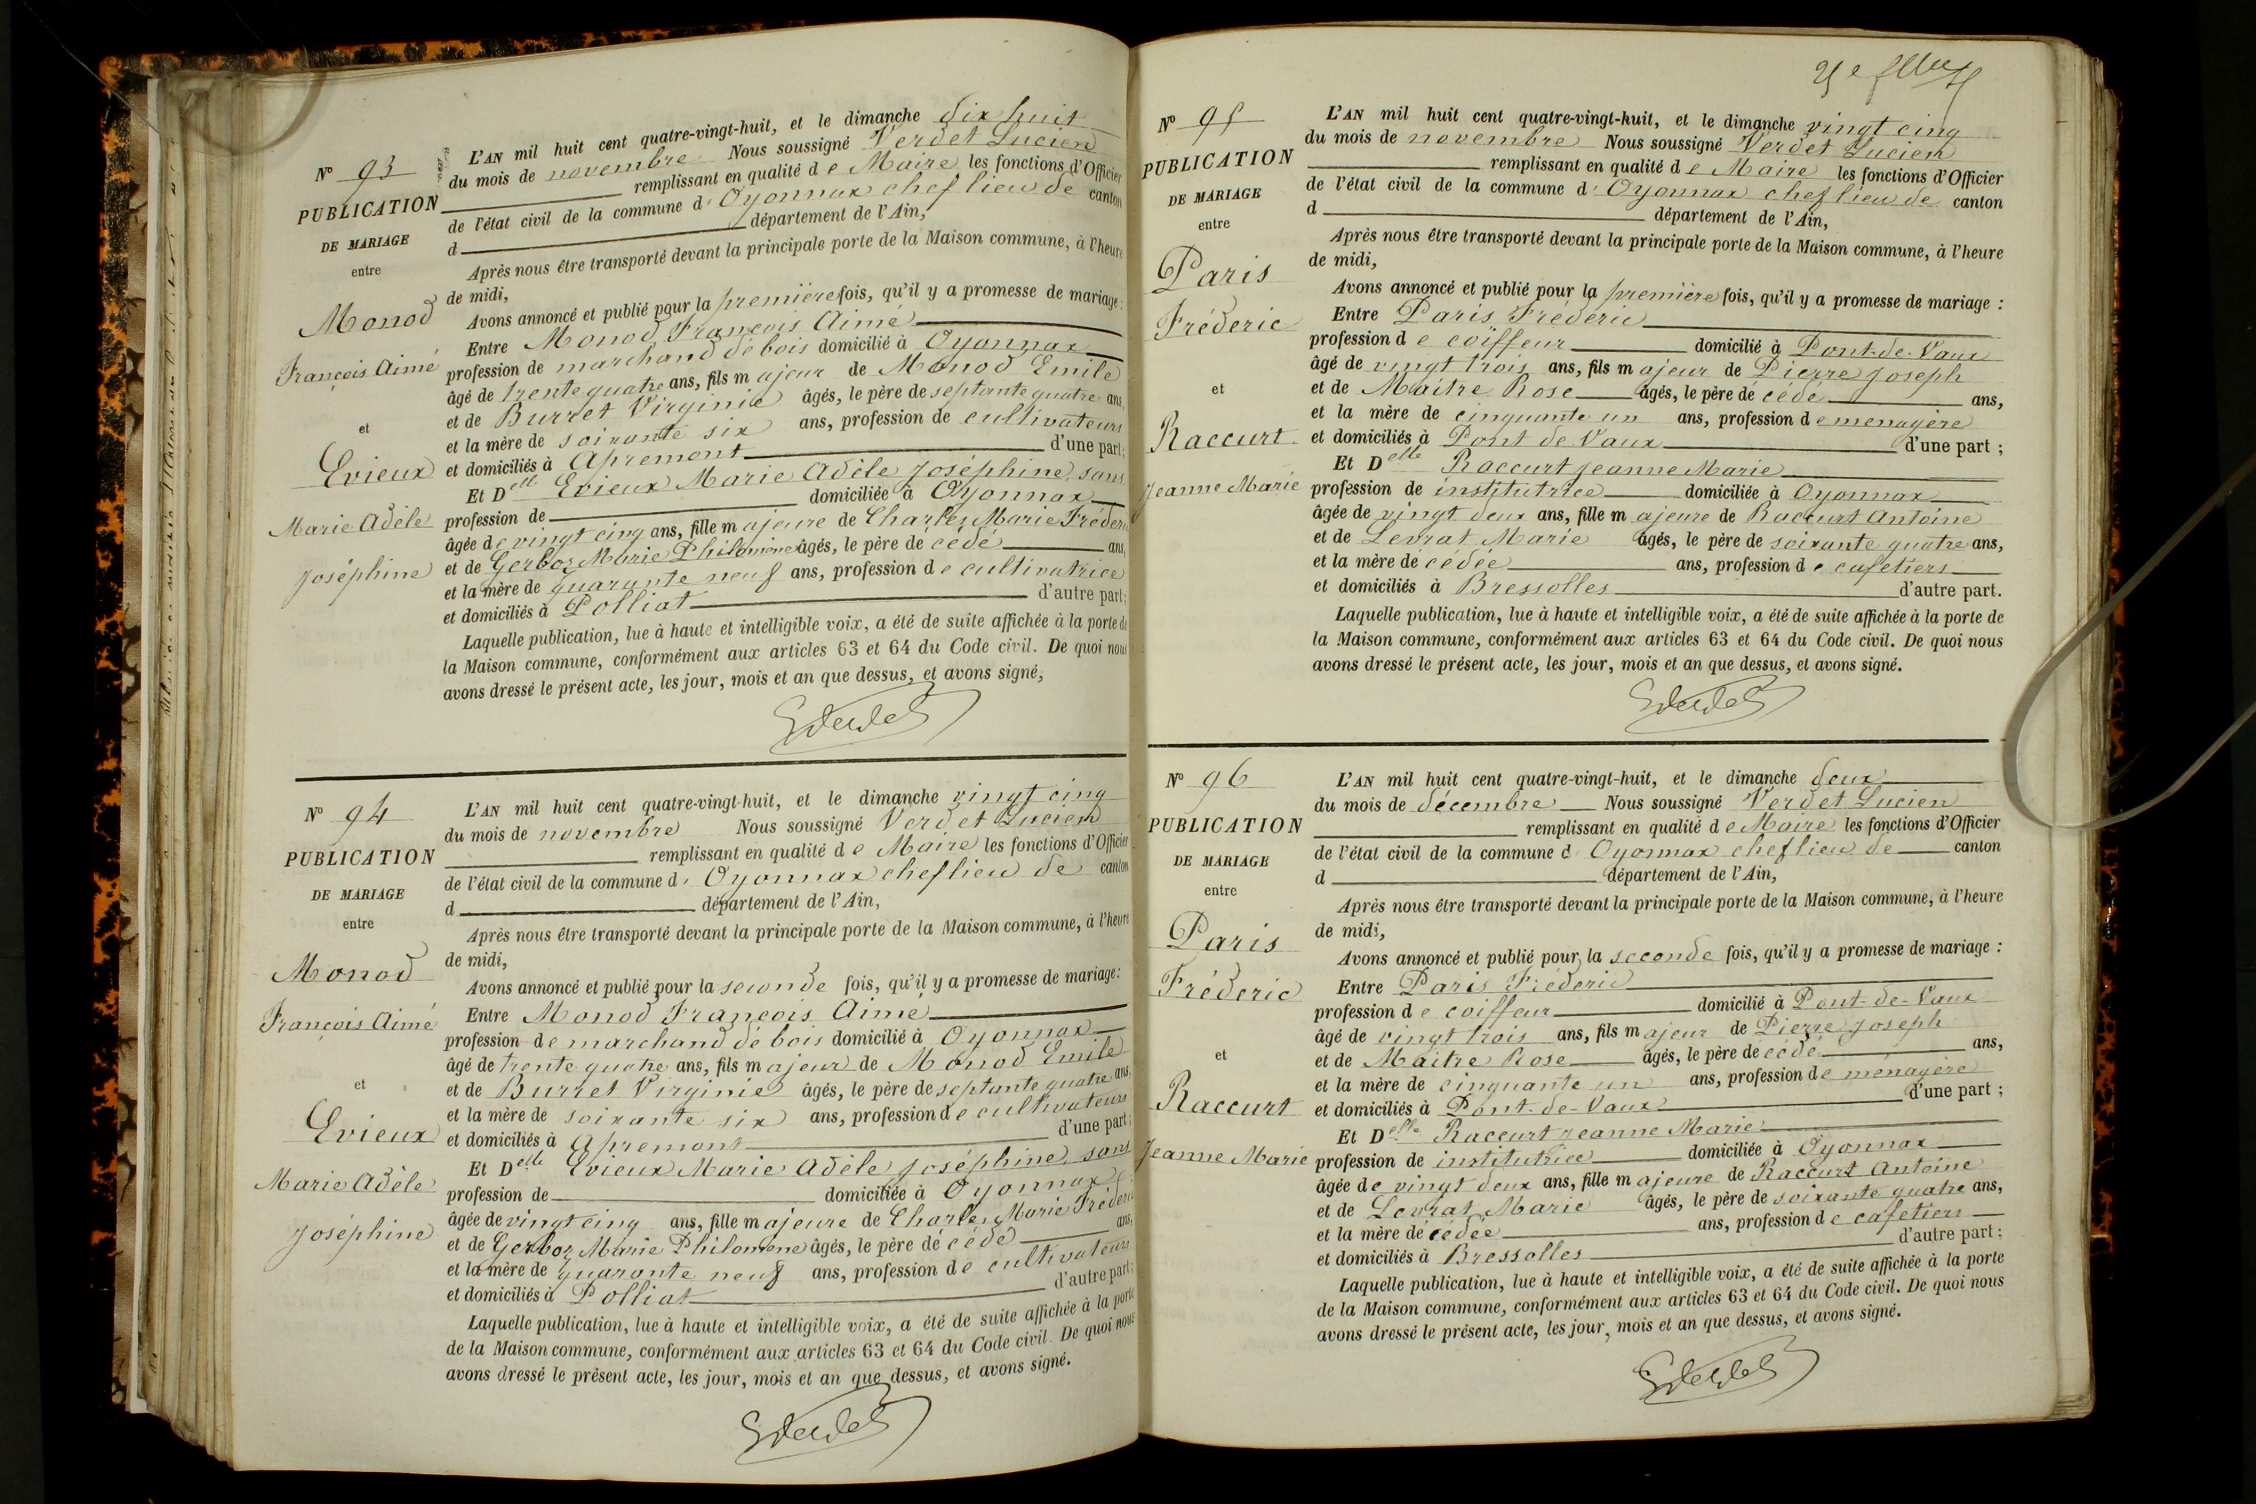 Nº 93
PUBLICATION
DE MARIAGE
entre
Monod
François Aimé
et
Evieux
Marie Adèle
Joséphine
L'AN mil huit cent quatre-vingt-huit, et le dimanche dix huit
du mois de novembre Nous soussigné Verdet Lucien
remplissant en qualité de Maire les fonctions d'Officier
de l'état civil de la commune d' Oyonnax chef lieu de canton
d département de l'Ain,
Après nous être transporté devant la principale porte de la Maison commune, à l'heure
de midi,
Avons annoncé et publié pour la première fois, qu'il y a promesse de mariage :
Entre Monod François Aimé
profession de marchand de bois domicilié à Oyonnax
âgé de trente quatre ans, fils majeur de Monod Emile
et de Burret Virginie âgés, le père de septante quatre ans,
et la mère de soixante six ans, profession de cultivateurs
et domiciliés à Apremont d'une part;
Et Delle Evieux Marie Adèle Joséphine, sans
profession de domiciliée à Oyonnax
âgée de vingt cinq ans, fille majeure de Charles Marie Fréderic
et de Gerboz Marie Philomène âgés, le père décédé ans,
et la mère de quarante neuf ans, profession de cultivatrice
et domiciliés à Polliat d'autre part;
Laquelle publication, lue à haute et intelligible voix, a été de suite affichée à la porte de
la Maison commune, conformément aux articles 63 et 64 du Code civil. De quoi nous
avons dressé le présent acte, les jour, mois et an que dessus, et avons signé,
Nº 94
PUBLICATION
DE MARIAGE
entre
Monod
François Aimé
et
Evieux
Marie Adèle
Joséphine
L'AN mil huit cent quatre-vingt-huit, et le dimanche vingt cinq
du mois de novembre Nous soussigné Verdet Lucien
remplissant en qualité de Maire les fonctions d'Officier
de l'état civil de la commune d' Oyonnax chef lieu de canton
d département de l'Ain,
Après nous être transporté devant la principale porte de la Maison commune, à l'heure
de midi,
Avons annoncé et publié pour la seconde fois, qu'il y a promesse de mariage:
Entre Monod François Aimé
profession de marchand de bois domicilié à Oyonnax
âgé de trente quatre ans, fils majeur de Monod Emile
et de Burret Virginie âgés, le père de septante quatre ans,
et la mère de soixante six ans, profession de cultivateurs
et domiciliés à Apremont d'une part;
Et Delle Evieux Marie Adèle Joséphine, sans
profession de domiciliée à Oyonnax
âgée de vingt cinq ans, fille majeure de Charles Marie Fréderic
et de Gerboz Marie Philomène âgés, le père décédé ans,
et la mère de quarante neuf ans, profession de cultivateurs
et domiciliés à Polliat d'autre part;
Laquelle publication, lue à haute et intelligible voix, a été de suite affichée à la porte
de la Maison commune, conformément aux articles 63 et 64 du Code civil. De quoi nous
avons dressé le présent acte, les jour, mois et an que dessus, et avons signé.
Nº 95
PUBLICATION
DE MARIAGE
entre
Paris
Fréderic
et
Raccurt
Jeanne Marie
L'AN mil huit cent quatre-vingt-huit, et le dimanche vingt cinq
du mois de novembre Nous soussigné Verdet Lucien
remplissant en qualité de Maire les fonctions d'Officier
de l'état civil de la commune d' Oyonnax chef lieu de canton
d département de l'Ain,
Après nous être transporté devant la principale porte de la Maison commune, à l'heure
de midi,
Avons annoncé et publié pour la première fois, qu'il y a promesse de mariage :
Entre Paris Fréderic
profession de coiffeur domicilié à Pont-de-Vaux
âgé de vingt trois ans, fils majeur de Pierre Joseph
et de Maitre Rose âgés, le père décédé ans,
et la mère de cinquante un ans, profession de ménagère
et domiciliés à Pont de Vaux d'une part ;
Et Delle Raccurt Jeanne Marie
profession de institutrice domiciliée à Oyonnax
âgée de vingt deux ans, fille majeure de Raccurt Antoine
et de Levrat Marie âgés, le père de soixante quatre ans,
et la mère décédée ans, profession de cafetiers
et domiciliés à Bressolles d'autre part.
Laquelle publication, lue à haute et intelligible voix, a été de suite affichée à la porte de
la Maison commune, conformément aux articles 63 et 64 du Code civil. De quoi nous
avons dressé le présent acte, les jour, mois et an que dessus, et avons signé.
Nº 96
PUBLICATION
DE MARIAGE
entre
Paris
Fréderic
et
Raccurt
Jeanne Marie
L'AN mil huit cent quatre-vingt-huit, et le dimanche deux
du mois de décembre Nous soussigné Verdet Lucien
remplissant en qualité de Maire les fonctions d'Officier
de l'état civil de la commune d Oyonnax chef lieu de canton
d département de l'Ain,
Après nous être transporté devant la principale porte de la Maison commune, à l'heure
de midi,
Avons annoncé et publié pour la seconde fois, qu'il y a promesse de mariage :
Entre Paris Fréderic
profession de coiffeur domicilié à Pont-de-Vaux
âgé de vingt trois ans, fils majeur de Pierre Joseph
et de Maitre Rose âgés, le père décédé ans,
et la mère de cinquante un ans, profession de ménagère
et domiciliés à Pont-de-Vaux d'une part ;
Et Delle Raccurt Jeanne Marie
profession de institutrice domiciliée à Oyonnax
âgée de vingt deux ans, fille majeure de Raccurt Antoine
et de Levrat Marie âgés, le père de soixante quatre ans,
et la mère décédée ans, profession de cafetiers
et domiciliés à Bressolles d'autre part;
Laquelle publication, lue à haute et intelligible voix, a été de suite affichée à la porte
de la Maison commune, conformément aux articles 63 et 64 du Code civil. De quoi nous
avons dressé le présent acte, les jour, mois et an que dessus, et avons signé.